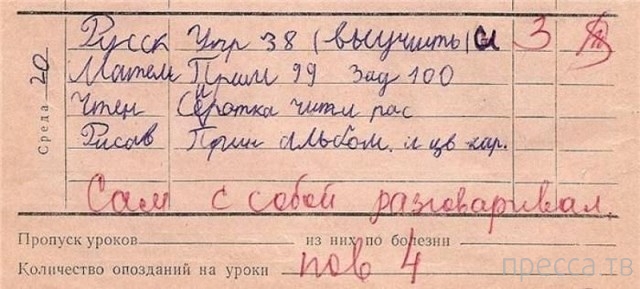 Среда 20
Русск Упр 38 (выучить) 3
Матем Прим 99 Зад 100
Чтен Сиротка читл рас
Рисов Прин альбом. и цв кар.
Сам с собой разговаривал.
Пропуск уроков из них по болезни
Количество опозданий на уроки пов 4
пресса тв